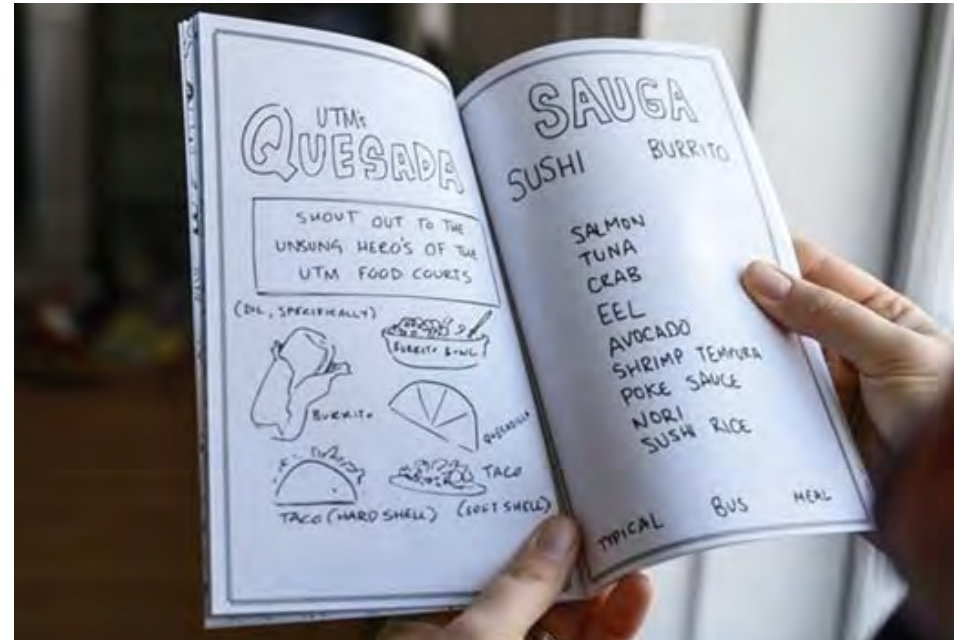 UTM's
QUESADA
SHOUT OUT TO THE
UNSUNG HERO'S OF THE
UTM FOOD COURTS
(DIL, SPECIFICALLY)
BURRITO BOWL
BURRITO
QUESADILLA
TACO
TACO (HARD SHELL) (SOFT SHELL)
SAUGA
SUSHI BURRITO
SALMON
TUNA
CRAB
EEL
AVOCADO
SHRIMP TEMPURA
POKE SAUCE
NORI
SUSHI RICE
TYPICAL BUS MEAL